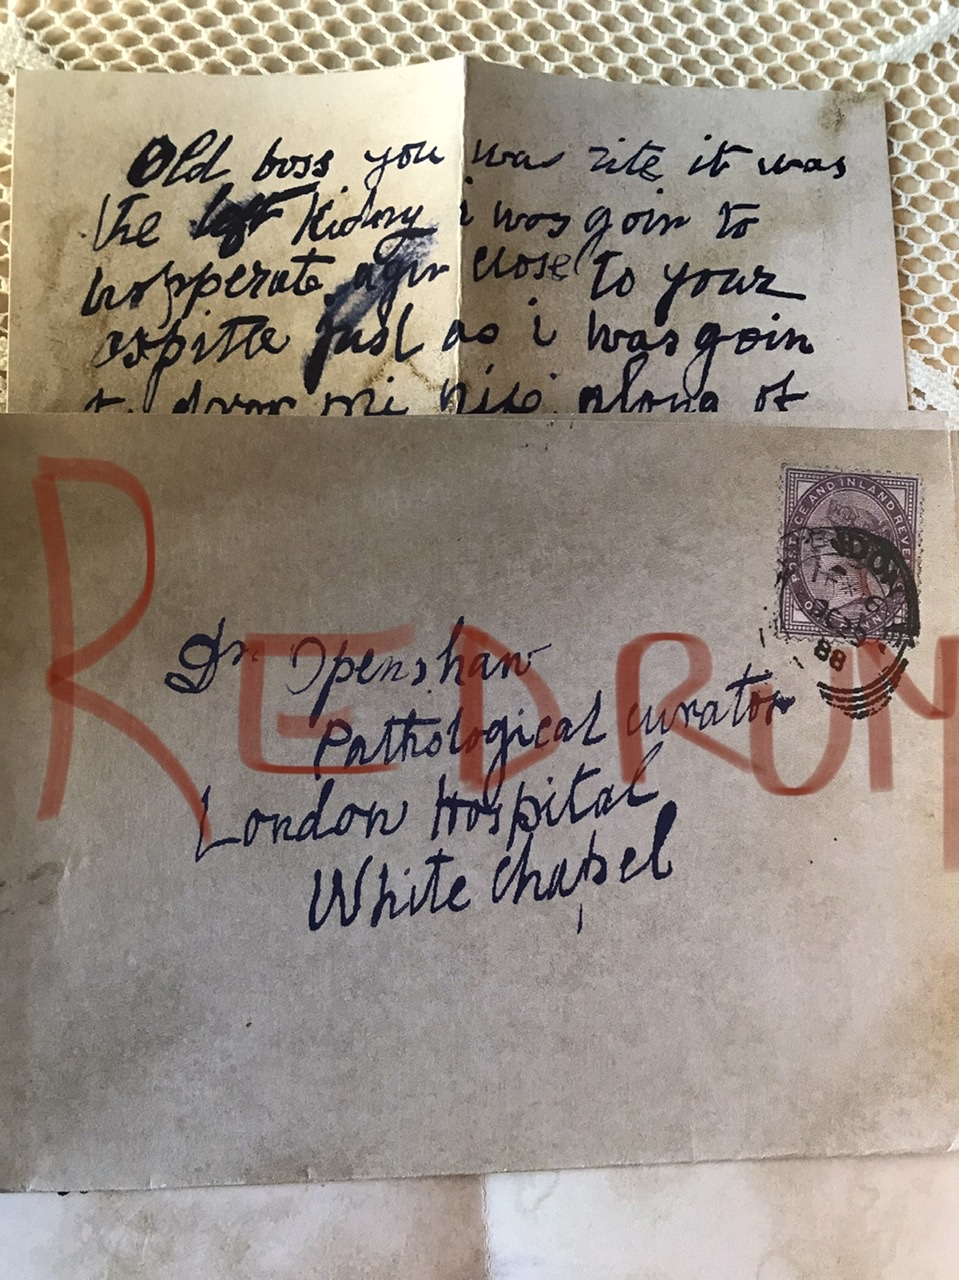 Old boss you was rite it was
the left Kidny i was goin to
hopperate agin close to your
ospitle just as i was goin
of
POSTAGE AND INLAND REVE
88
REDRUM
Dr Openshaw
Pathological curator
London Hospital
White chapel